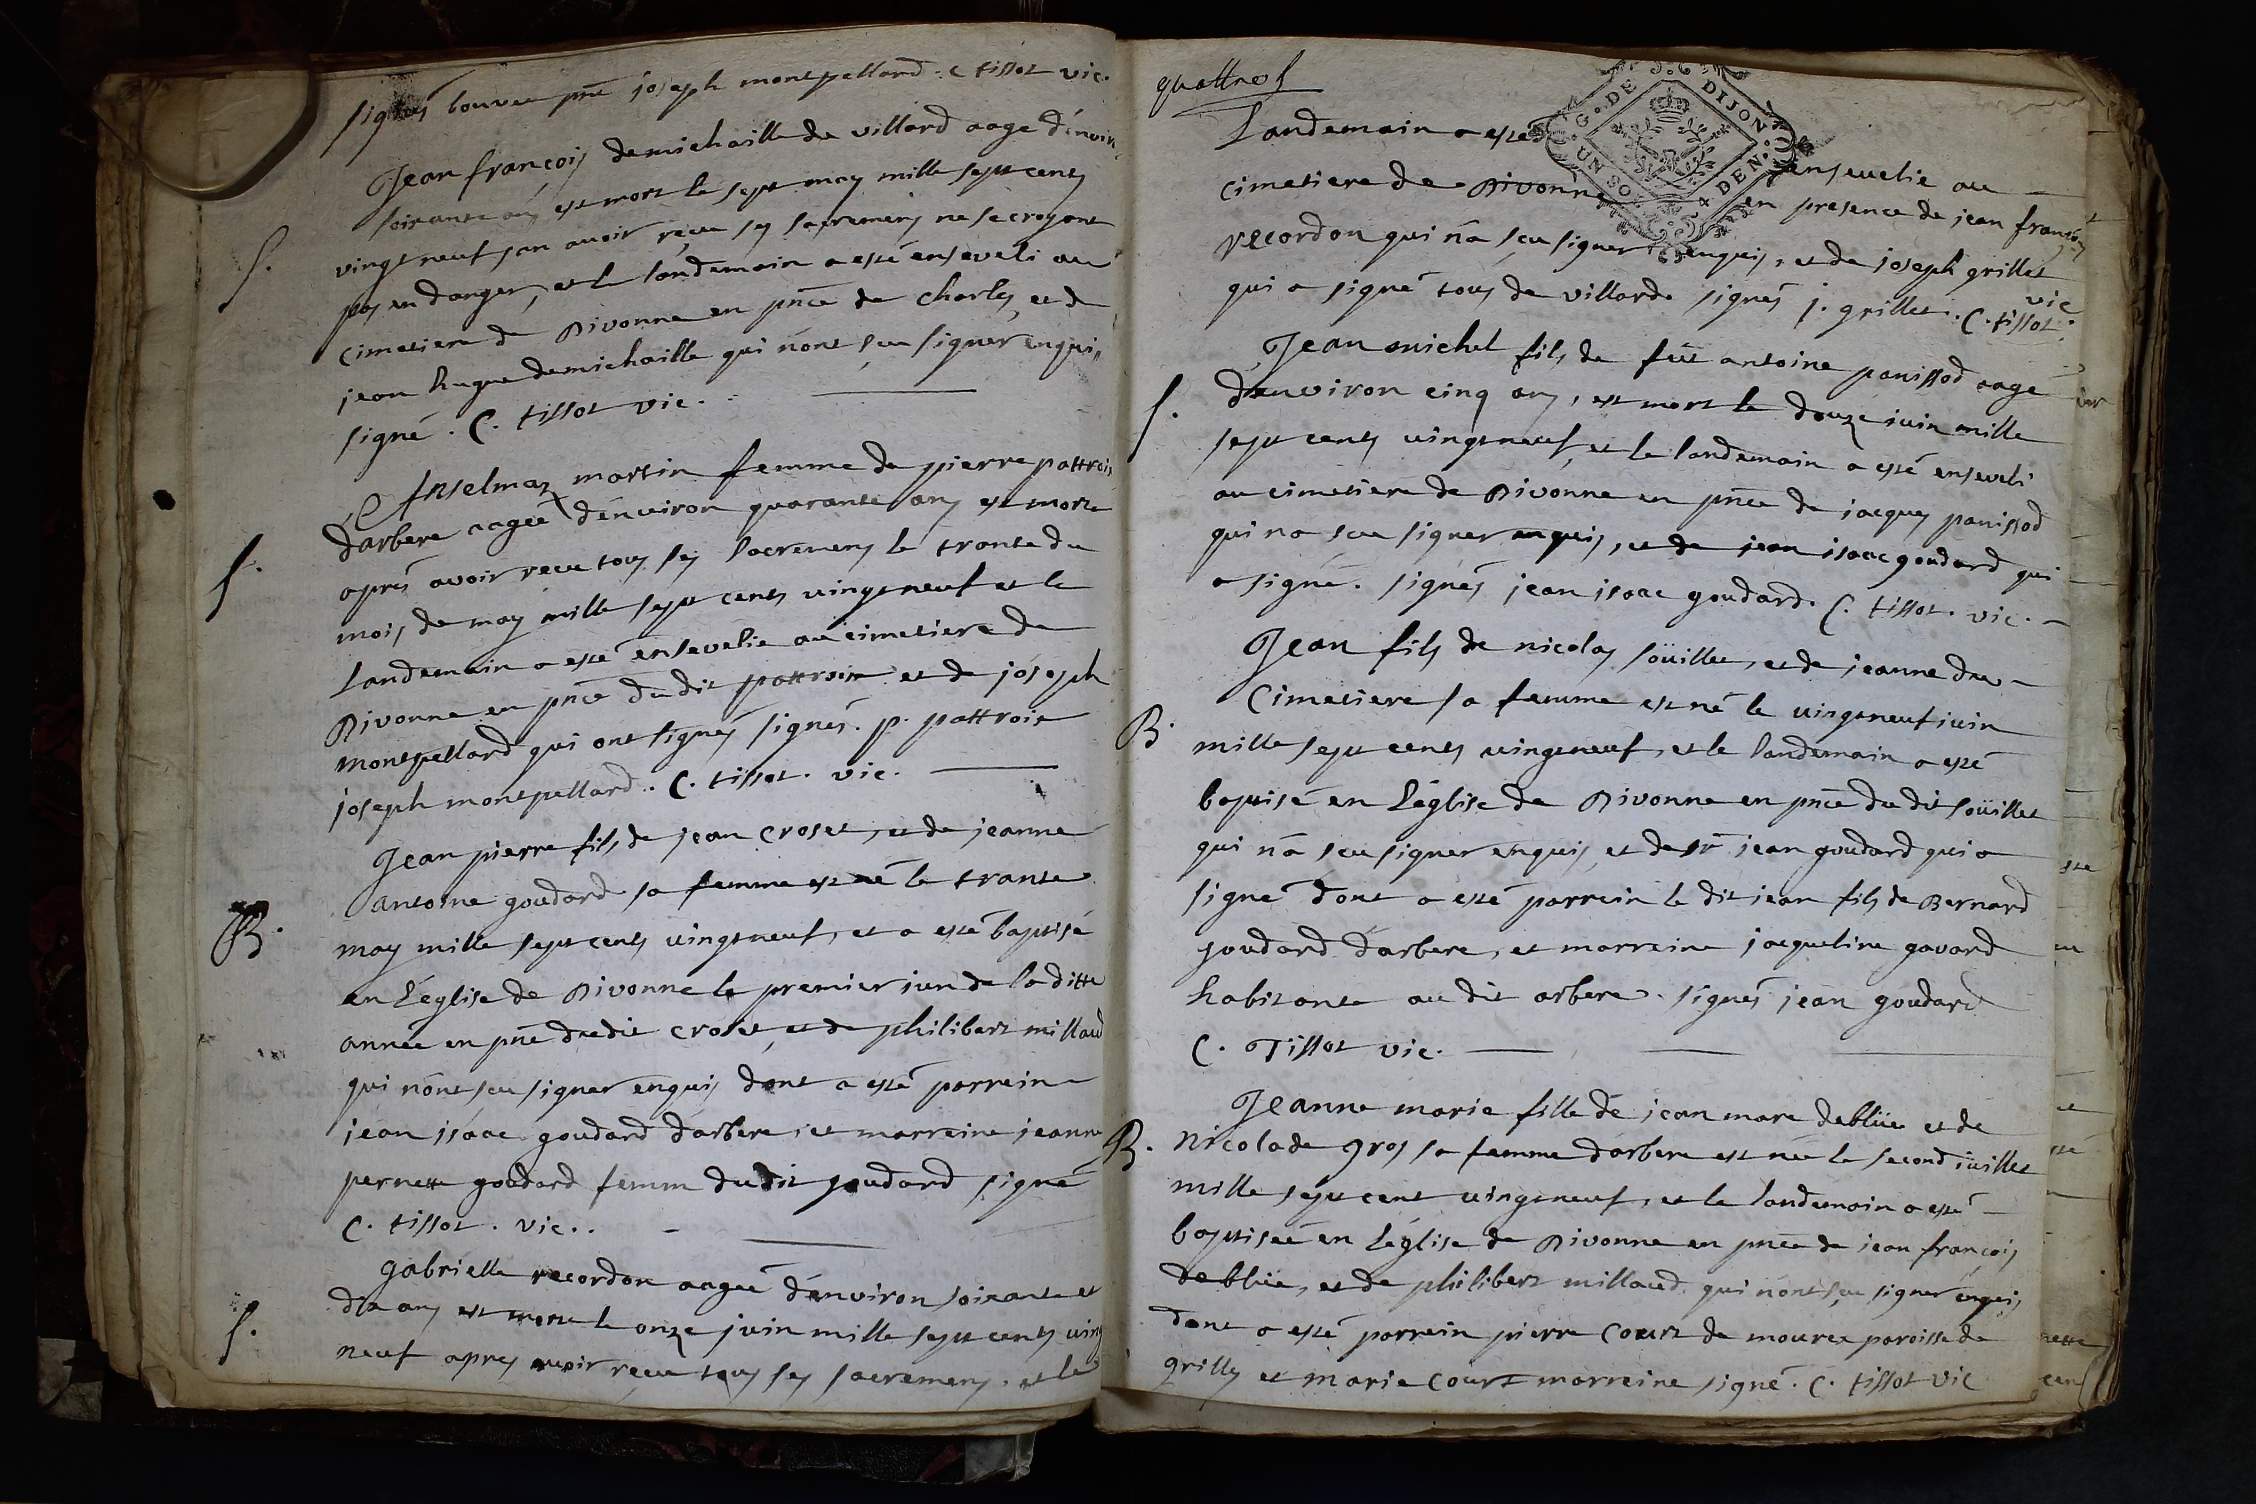 signés bouver pnt joseph montpellard. C tissot vic.
Jean françois demichaille de villard aage d'environ
soixante ans est mort le sept may mille sept cents
vingt neuf san avoir reçeu ses sacremens ne se croyant
pas en danger, et le landemain a esté enseveli au
cimetiere de Divonne en pnce de charles, et de
jean hugue demichaille qui n'ont sçeu signer enquis
signé. C. tissot vic.
S.
Anselmaz martin femme de pierre pattroix
darbere aagée d'environ quarante ans est morte
aprés avoir reçeu tous ses sacremens le trante du
mois de may mille sept cents vingt neuf et le
landemain a esté ensevelie au cimetiere de
Divonne en pnce du dit pattroix et de joseph
montpellard qui ont signés signés. p. pattroix
joseph montpellard. C. tissot. vic.
S.
Jean pierre fils de jean croset, et de jeanne
antoine goudard sa femme est né le trante
may mille sept cents vingt neuf, et a esté baptisé
en l'église de Divonne le premier iun de la ditte
année en pnce du dit croset, et de philibert millaud
qui n'ont sçeu signer enquis dont a esté parrein
jean isaac goudard d'arbere, et marraine jeanne
pernette goudard femm du dit goudard signé
C. tissot. vic..
B.
Gabrielle recordon aageé d'environ soixante et
dix ans est morte le onze juin mille sept cents vingt
neuf apres avoir reçeu tous ses sacremens. et le
S.
quattre
G. DE DIJON
UN SO 4 DEN.
Landemain a esté ensevelie au
cimetiere de Divonne en presence de jean françois
recordon qui n'a sçeu signer enquis, et de joseph grillet
qui a signé tous de villard. signés j. grillet. C. tissot vic.
Jean michel fils de feu antoine panissod aagé
d'environ cinq ans, est mort le douze iuin mille
sept cents vingt neuf, et le landemain a esté enseveli
au cimetiere de Divonne en pnce de jacques panissod
qui n'a sceu signer enquis, et de jean isaac goudard qui
a signé. signés jean isaac goudard. C. tissot. vic.
S.
Jean fils de nicolas soüillet, et de jeanne du
Cimetiere sa femme est né le vingt neuf iuin
mille sept cents vingt neuf, et le landemain a esté
baptisé en l'église de Divonne en pnce du dit soüillet
qui n'a sceu signer enquis, et de sr jean goudard qui a
signé dont a esté parrein le dit jean fils de Bernard
goudard d'arbere, et marreine jacqueline gavard
habitante au dit arbere. signés jean goudard
C. Tissot vic.
B.
Jeanne marie fille de jean marc debluë et de
nicolade gros sa femme d'arbere est née le second iüillet
mille sept cent vingt neuf, et le landemain a esté
baptiseé en l'église de Divonne en pnce de jean françois
debluë, et de philibert millaud qui n'ont sçeu signer enquis
dont a esté parrein pierre Court de mourex paroisse de
grilly et marie Court marreine signé. C. tissot vic
B.